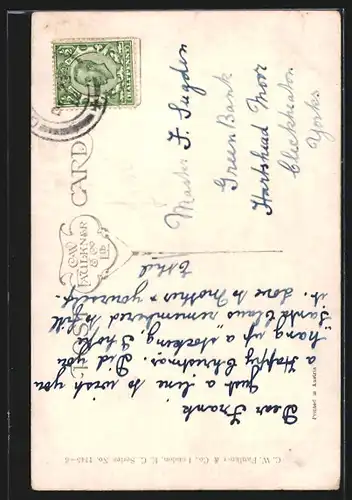 POST CARD
C.W. FAULKNER & Co Ltd
Dear Frank
Just a line to wish you
a Happy Christmas. Did you
"hang up" a stocking. I hope
Santa Claus remembered to fill
it. Love to Mother & yourself.
Ethel
Master F. Sugden
Green Bank
Hartshead Moor
Cleckheaton
Yorks
C. W. Faulkner & Co., London, E. C. Series No.
Printed in Austria